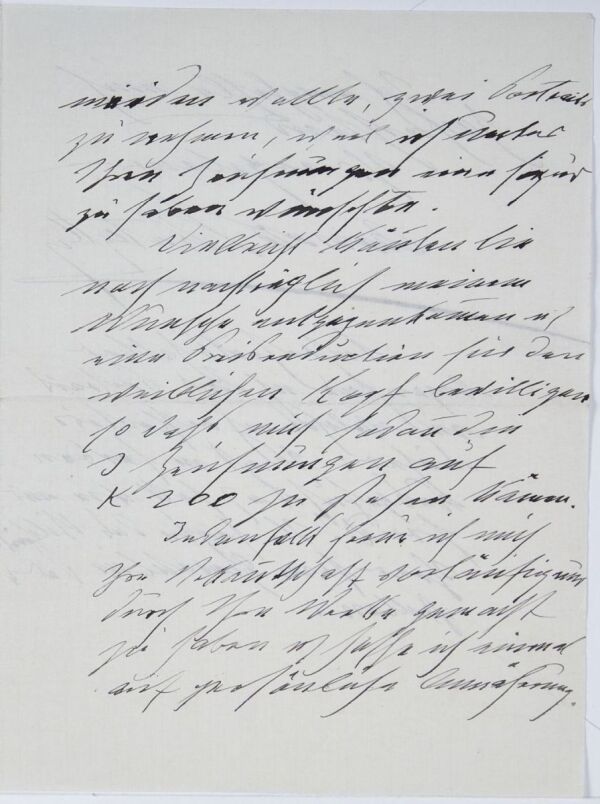 meiden wollte, zwei Portraits
zu nehmen, weil ich unter
Ihren Zeichnungen eine Figur
zu haben wünschte.
Vielleicht könnten Sie
noch nachträglich meinem
Wunsche entgegenkommen u.
eine Preisreduction für den
weiblichen Kopf bewilligen
so daß mich sodann die
3 Zeichnungen auf
K 200 zu stehen kämen.
Jedenfalls freue ich mich
Ihre Bekanntschaft vorläufig nur
durch Ihre Werke gemacht
zu haben u. hoffe ich einmal
auf persönliche Annäherung.